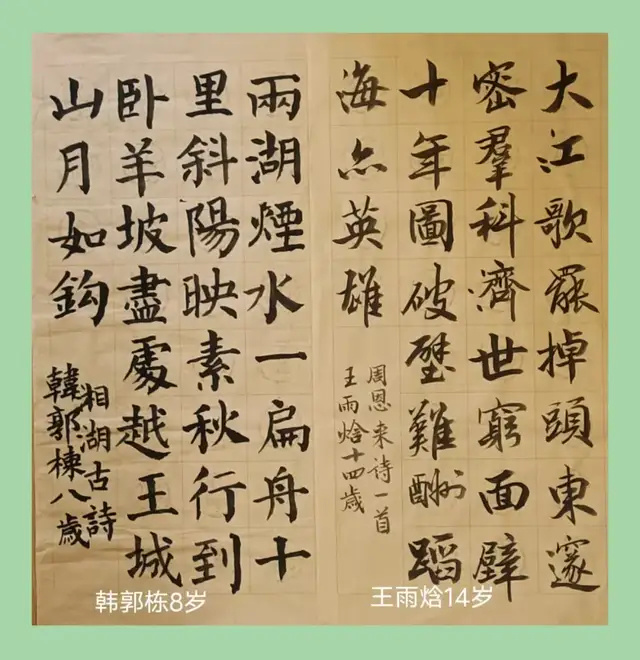 大江歌罷掉頭東邃
密羣科濟世窮面壁
十年圖破壁難酬蹈
海亦英雄
周恩来诗一首
王雨焓十四歲
兩湖煙水一扁舟十
里斜陽映素秋行到
卧羊坡盡處越王城
山月如鈎
相湖古詩
韓郭棟八歲
韩郭栋8岁
王雨焓14岁